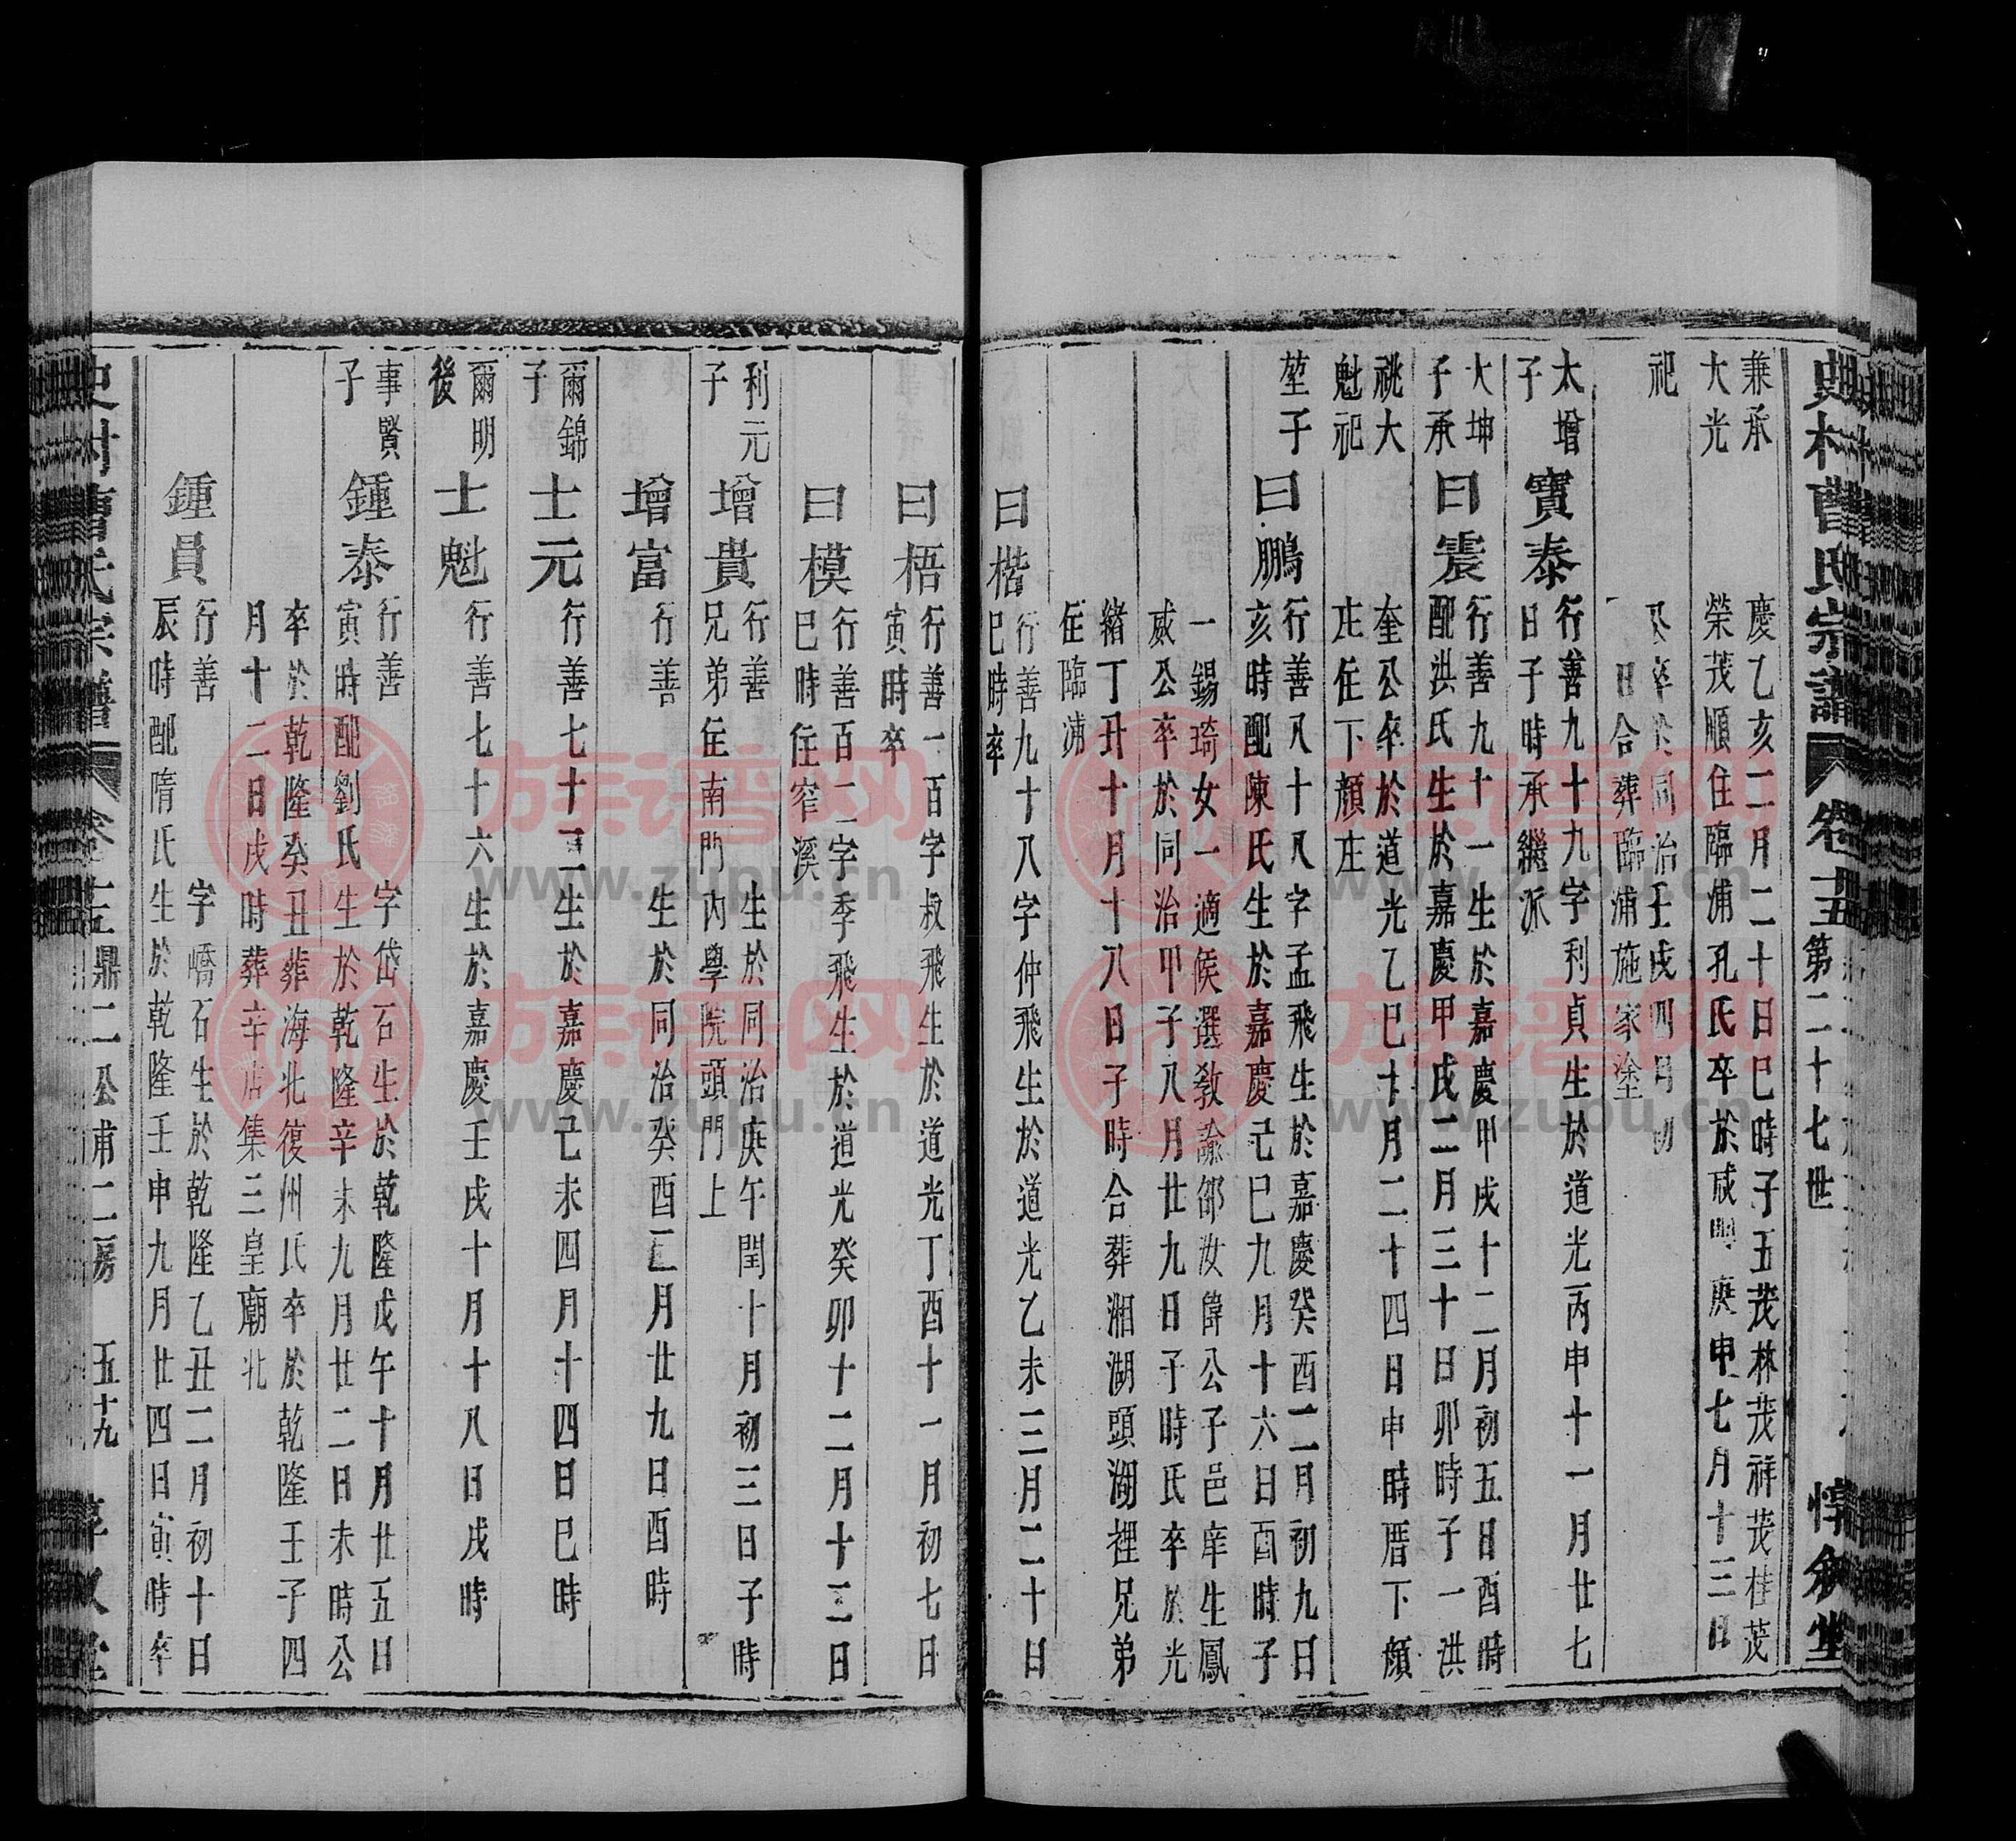 史村曹氏宗譜 卷十五 第二十七世 惇敘堂
兼承
大光
慶乙亥二月二十日巳時子五茂林茂祥茂桂茂
榮茂順住臨浦孔氏卒於咸豐庚申七月十三日
祀
卒於同治壬戌四月初
日合葬臨浦施家塗
太增
子
寶泰
行善九十九字利貞生於道光丙申十一月廿七
日子時承繼派
大坤
子承
曰震
行善九十一生於嘉慶甲戌十二月初五日酉時
配洪氏生於嘉慶甲戌二月三十日卯時子一洪
祧大
魁祀
奎公卒於道光乙巳十月二十四日申時厝下顏
庄住下顏庄
堃子
曰鵬
行善八十八字孟飛生於嘉慶癸酉二月初九日
亥時配陳氏生於嘉慶己巳九月十六日酉時子
一錫琦女一適候選教諭邵汝偉公子邑庠生鳳
威公卒於同治甲子八月廿九日子時氏卒於光
緒丁丑十月十八日子時合葬湘湖頭湖裡兄弟
住臨浦
曰楷
行善九十八字仲飛生於道光乙未三月二十日
巳時卒
曰梧
行善一百字叔飛生於道光丁酉十一月初七日
寅時卒
曰模
行善百一字季飛生於道光癸卯十二月十三日
巳時住窄溪
利元
子
增貴
行善 生於同治庚午閏十月初三日子時
兄弟住南門內學院頭門上
增富
行善 生於同治癸酉二月廿九日酉時
爾錦
子
士元
行善七十三生於嘉慶己未四月十四日巳時
爾明
後
士魁
行善七十六生於嘉慶壬戌十月十八日戌時
事賢
子
鍾泰
行善 字岱石生於乾隆戊午十月廿五日
寅時配劉氏生於乾隆辛未九月廿二日未時公
卒於乾隆癸丑葬海北復州氏卒於乾隆壬子四
月十二日戌時葬辛店集三皇廟北
鍾員
行善 字嶠石生於乾隆乙丑二月初十日
辰時配隋氏生於乾隆壬申九月廿四日寅時卒
史村曹氏宗譜 卷十五 鼎二公甫二房 五十九 惇敘堂
族谱网
www.zupu.cn
族谱网
www.zupu.cn
族谱网
www.zupu.cn
族谱网
www.zupu.cn